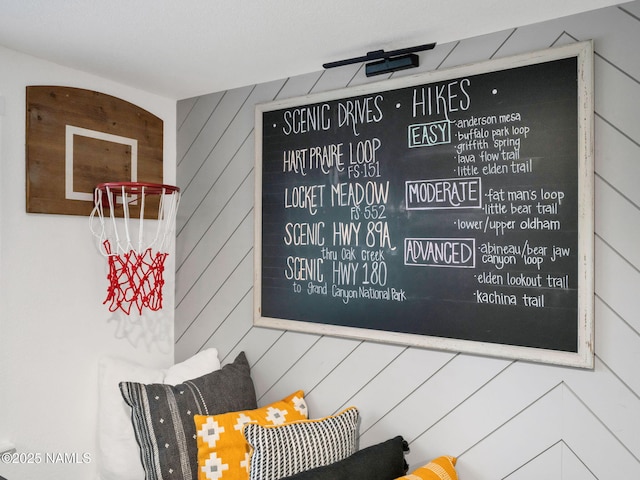 SCENIC DRIVES
HART PRAIRE LOOP
FS 151
LOCKET MEADOW
FS 552
SCENIC HWY 89A
thru oak creek
SCENIC HWY 180
to grand Canyon National Park
HIKES
EASY
anderson mesa
buffalo park loop
griffith spring
lava flow trail
little elden trail
MODERATE
fat man's loop
little bear trail
lower/upper oldham
ADVANCED
abineau/bear jaw
canyon loop
elden lookout trail
kachina trail
©2025 NAMLS